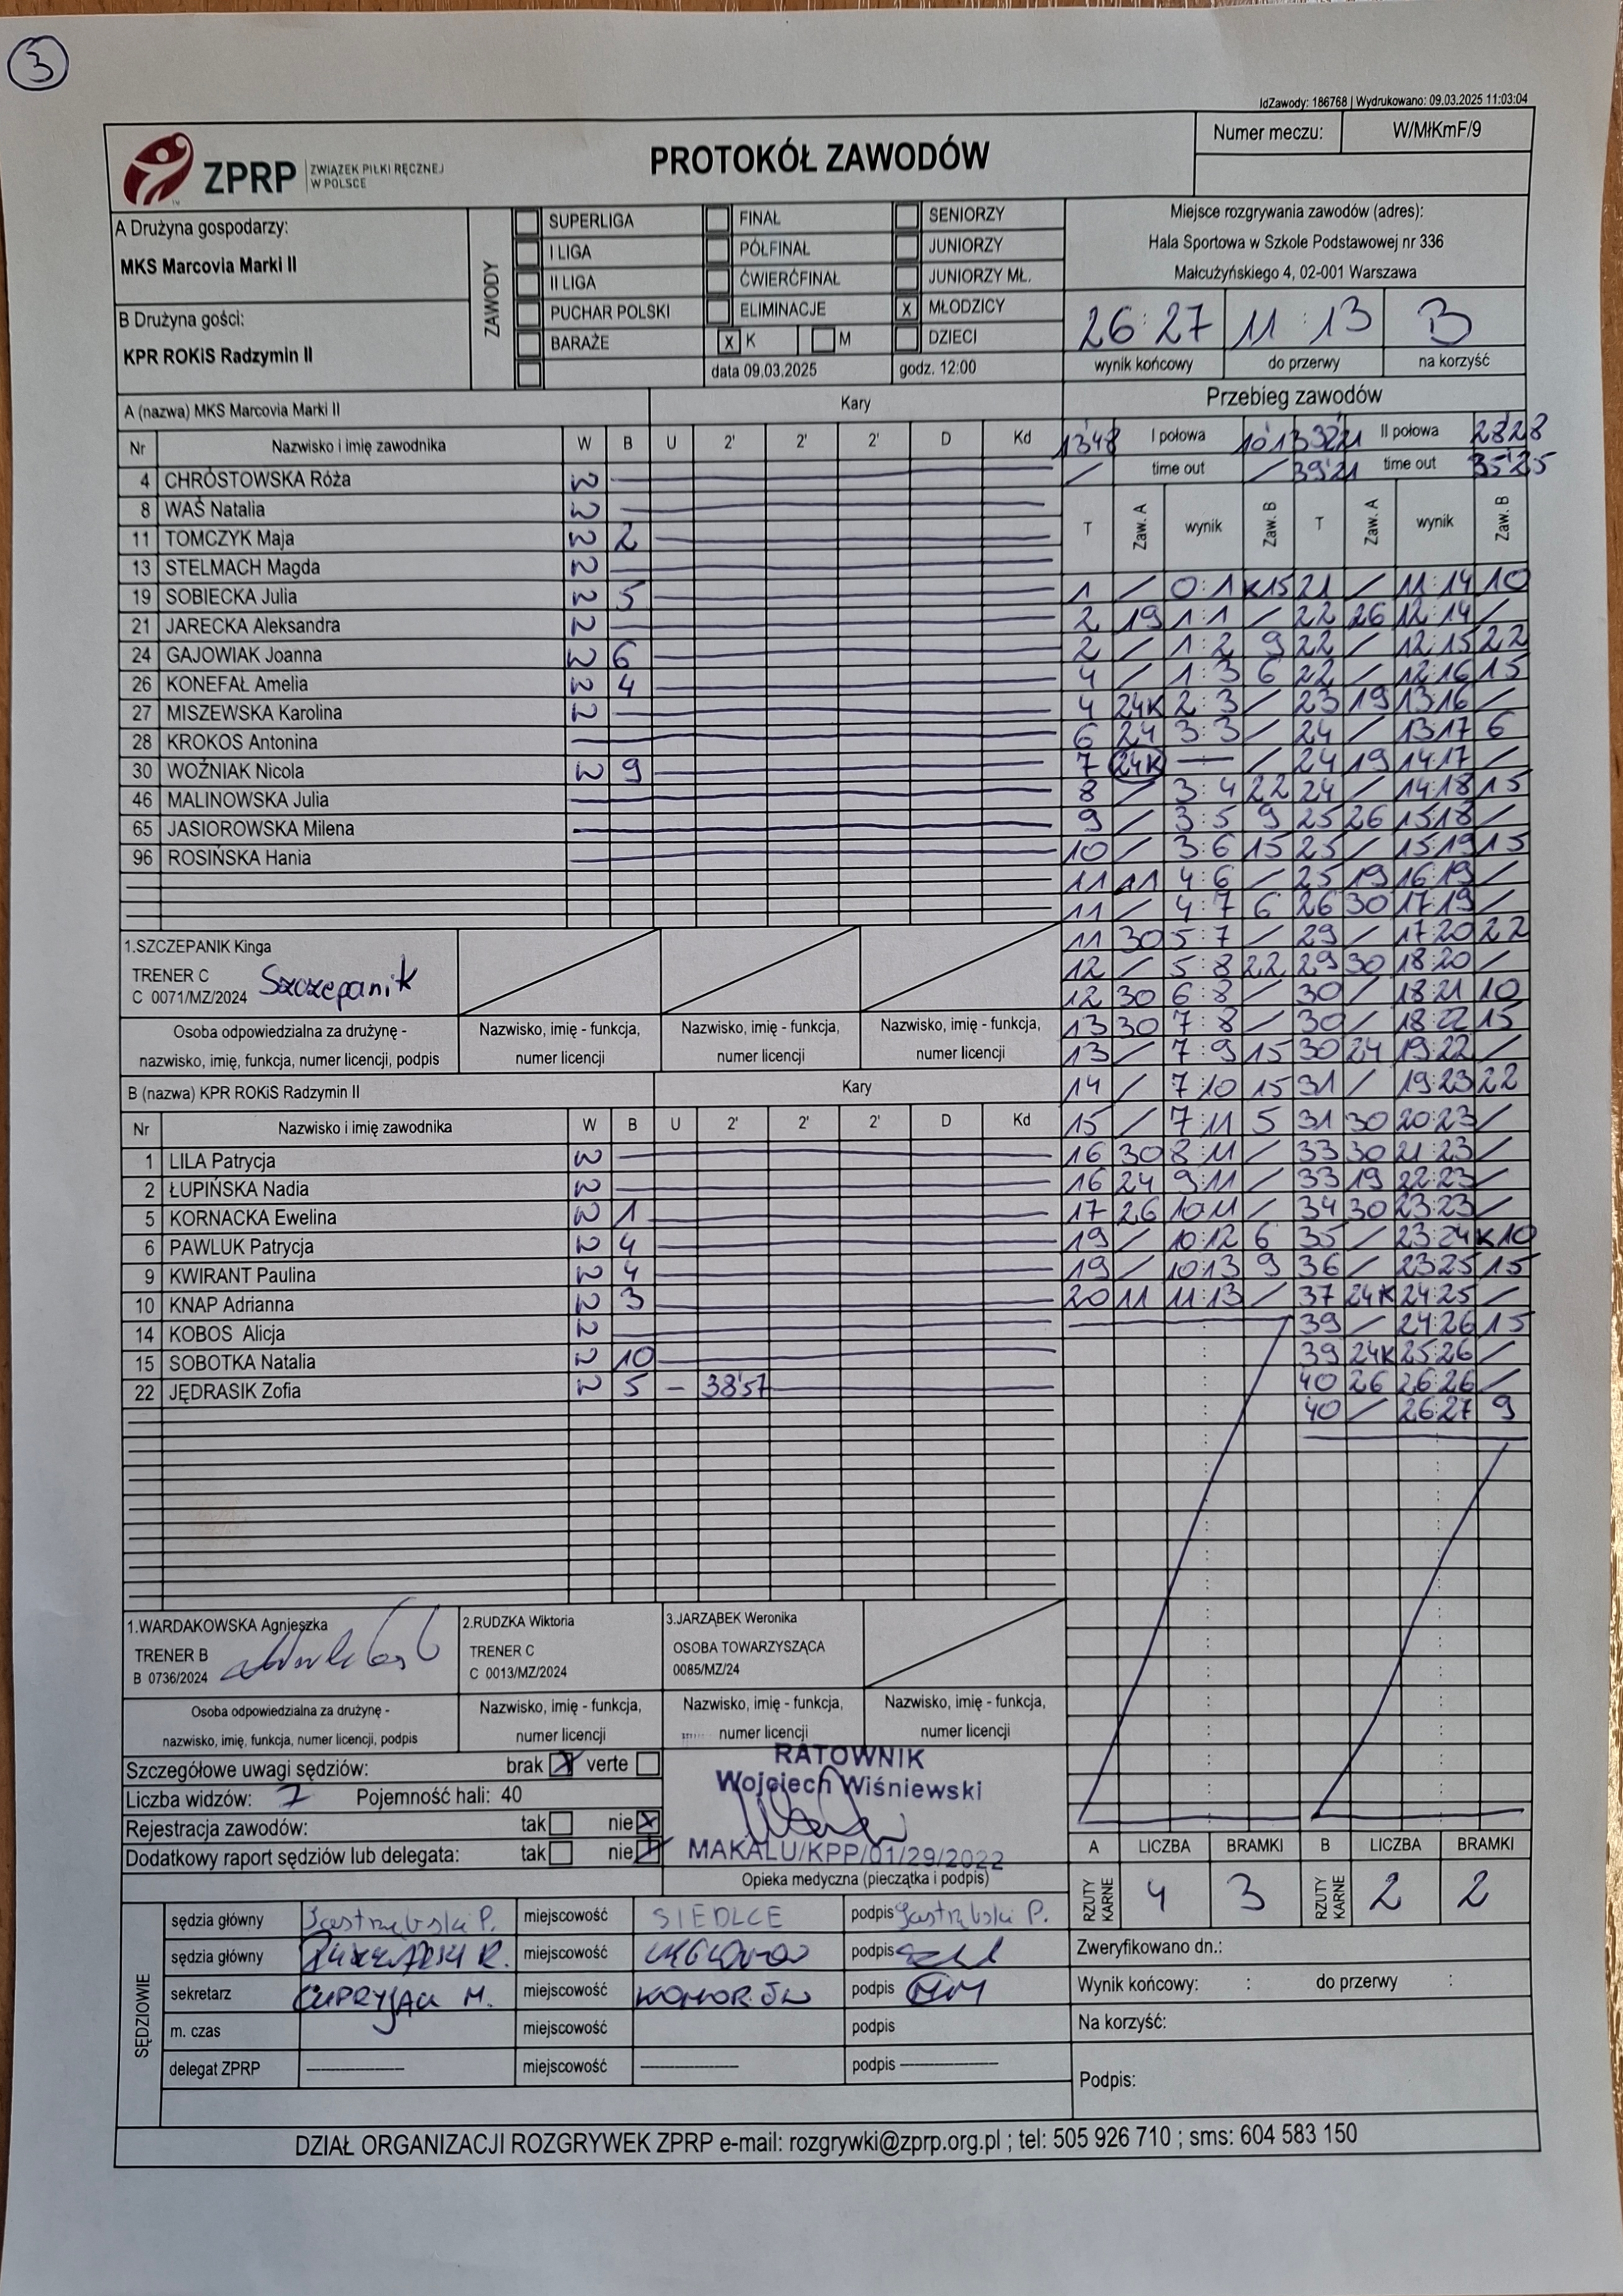 3
IdZawody: 186768 | Wydrukowano: 09.03.2025 11:03:04
ZPRP ZWIĄZEK PIŁKI RĘCZNEJ W POLSCE
PROTOKÓŁ ZAWODÓW
Numer meczu: W/MłKmF/9
A Drużyna gospodarzy:
MKS Marcovia Marki II
B Drużyna gości:
KPR ROKiS Radzymin II
ZAWODY
SUPERLIGA FINAŁ SENIORZY
I LIGA PÓŁFINAŁ JUNIORZY
II LIGA ĆWIERĆFINAŁ JUNIORZY MŁ.
PUCHAR POLSKI ELIMINACJE x MŁODZICY
BARAŻE x K M DZIECI
data 09.03.2025 godz. 12:00
Miejsce rozgrywania zawodów (adres):
Hala Sportowa w Szkole Podstawowej nr 336
Małcużyńskiego 4, 02-001 Warszawa
26:27 11:13 B
wynik końcowy do przerwy na korzyść
A (nazwa) MKS Marcovia Marki II Kary
Nr Nazwisko i imię zawodnika W B U 2' 2' 2' D Kd
4 CHRÓSTOWSKA Róża W
8 WAŚ Natalia W
11 TOMCZYK Maja W 2
13 STELMACH Magda W
19 SOBIECKA Julia W 5
21 JARECKA Aleksandra W
24 GAJOWIAK Joanna W 6
26 KONEFAŁ Amelia W 4
27 MISZEWSKA Karolina W
28 KROKOS Antonina
30 WOŹNIAK Nicola W 9
46 MALINOWSKA Julia
65 JASIOROWSKA Milena
96 ROSIŃSKA Hania
1.SZCZEPANIK Kinga
TRENER C
C 0071/MZ/2024 Szczepanik
Osoba odpowiedzialna za drużynę - nazwisko, imię, funkcja, numer licencji, podpis
Nazwisko, imię - funkcja, numer licencji
Nazwisko, imię - funkcja, numer licencji
Nazwisko, imię - funkcja, numer licencji
B (nazwa) KPR ROKiS Radzymin II Kary
Nr Nazwisko i imię zawodnika W B U 2' 2' 2' D Kd
1 LILA Patrycja W
2 ŁUPIŃSKA Nadia W
5 KORNACKA Ewelina W 1
6 PAWLUK Patrycja W 4
9 KWIRANT Paulina W 4
10 KNAP Adrianna W 3
14 KOBOS Alicja W
15 SOBOTKA Natalia W 10
22 JĘDRASIK Zofia W 5 - 38'57
1.WARDAKOWSKA Agnieszka
TRENER B
B 0736/2024
2.RUDZKA Wiktoria
TRENER C
C 0013/MZ/2024
3.JARZĄBEK Weronika
OSOBA TOWARZYSZĄCA
0085/MZ/24
Osoba odpowiedzialna za drużynę - nazwisko, imię, funkcja, numer licencji, podpis
Nazwisko, imię - funkcja, numer licencji
Nazwisko, imię - funkcja, numer licencji
Nazwisko, imię - funkcja, numer licencji
Przebieg zawodów
13'48 I połowa 10'13 39'21 II połowa 28'28
/ time out / 39'21 time out 35'25
T Zaw. A wynik Zaw. B T Zaw. A wynik Zaw. B
1 / 0:1 K15 21 / 11:14 10
2 19 1:1 / 22 26 12:14 /
2 / 1:2 9 22 / 12:15 22
4 / 1:3 6 22 / 12:16 15
4 24K 2:3 / 23 19 13:16 /
6 24 3:3 / 24 / 13:17 6
7 24K — / 24 19 14:17 /
8 / 3:4 22 24 / 14:18 15
9 / 3:5 9 25 26 15:18 /
10 / 3:6 15 25 / 15:19 15
11 11 4:6 / 25 19 16:19 /
11 / 4:7 6 26 30 17:19 /
11 30 5:7 / 29 / 17:20 22
12 / 5:8 22 29 30 18:20 /
12 30 6:8 / 30 / 18:21 10
13 30 7:8 / 30 / 18:22 15
13 / 7:9 15 30 24 19:22 /
14 / 7:10 15 31 / 19:23 22
15 / 7:11 5 31 30 20:23 /
16 30 8:11 / 33 30 21:23 /
16 24 9:11 / 33 19 22:23 /
17 26 10:11 / 34 30 23:23 /
19 / 10:12 6 35 / 23:24 K10
19 / 10:13 9 36 / 23:25 15
20 11 11:13 / 37 24K 24:25 /
39 / 24:26 15
39 24K 25:26 /
40 26 26:26 /
40 / 26:27 9
Szczegółowe uwagi sędziów: brak X verte
Liczba widzów: 7 Pojemność hali: 40
Rejestracja zawodów: tak nie X
Dodatkowy raport sędziów lub delegata: tak nie X
RATOWNIK
Wojciech Wiśniewski
MAKALU/KPP/01/29/2022
Opieka medyczna (pieczątka i podpis)
A LICZBA BRAMKI B LICZBA BRAMKI
RZUTY KARNE 4 3 RZUTY KARNE 2 2
SĘDZIOWIE
sędzia główny Jastrzębski P. miejscowość SIEDLCE podpis Jastrzębski P.
sędzia główny miejscowość podpis
sekretarz CUPRYJAK M. miejscowość KOMORÓW podpis
m. czas miejscowość podpis
delegat ZPRP miejscowość podpis
Zweryfikowano dn.:
Wynik końcowy: : do przerwy :
Na korzyść:
Podpis:
DZIAŁ ORGANIZACJI ROZGRYWEK ZPRP e-mail: rozgrywki@zprp.org.pl ; tel: 505 926 710 ; sms: 604 583 150